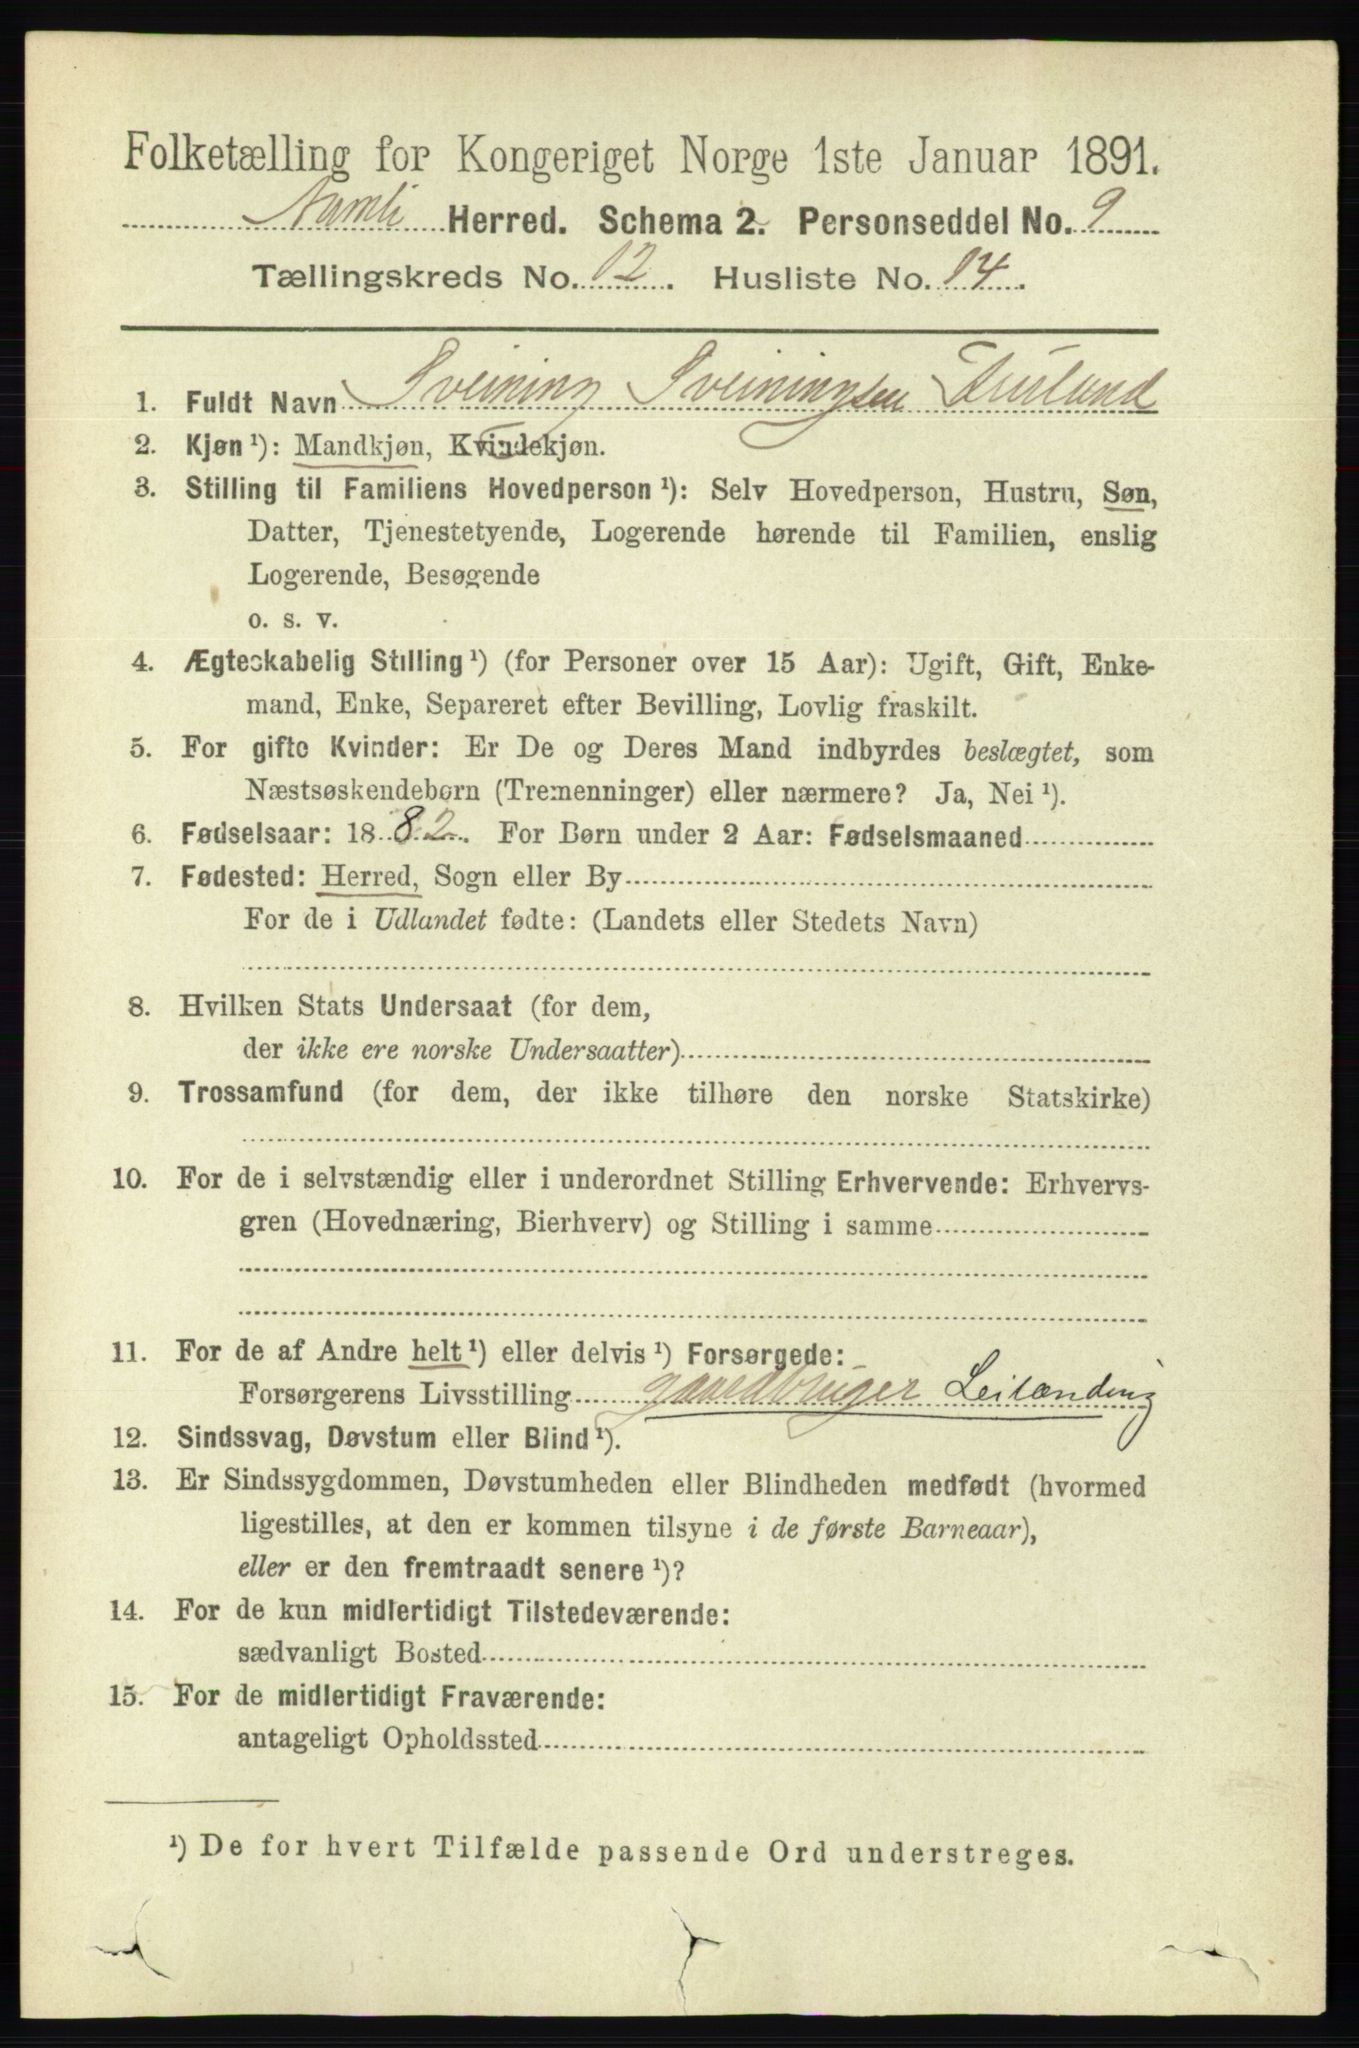 Folketælling for Kongeriget Norge 1ste Januar 1891.
Aamli Herred. Schema 2. Personseddel No. 9
Tællingskreds No. 12. Husliste No. 14.
1. Fuldt Navn Sveining Sveiningsen
2. Kjøn ¹): Mandkjøn, Kvindekjøn.
3. Stilling til Familiens Hovedperson ¹): Selv Hovedperson, Hustru, Søn,
Datter, Tjenestetyende, Logerende hørende til Familien, enslig
Logerende, Besøgende
o. s. v.
4. Ægteskabelig Stilling ¹) (for Personer over 15 Aar): Ugift, Gift, Enke-
mand, Enke, Separeret efter Bevilling, Lovlig fraskilt.
5. For gifte Kvinder: Er De og Deres Mand indbyrdes beslægtet, som
Næstsøskendebørn (Tremenninger) eller nærmere? Ja, Nei ¹).
6. Fødselsaar: 1882. For Børn under 2 Aar: Fødselsmaaned
7. Fødested: Herred, Sogn eller By
For de i Udlandet fødte: (Landets eller Stedets Navn)
8. Hvilken Stats Undersaat (for dem,
der ikke ere norske Undersaatter)
9. Trossamfund (for dem, der ikke tilhøre den norske Statskirke)
10. For de i selvstændig eller i underordnet Stilling Erhvervende: Erhvervs-
gren (Hovednæring, Bierhverv) og Stilling i samme
11. For de af Andre helt ¹) eller delvis ¹) Forsørgede:
Forsørgerens Livsstilling gaardbruger Leilænding
12. Sindssvag, Døvstum eller Blind ¹).
13. Er Sindssygdommen, Døvstumheden eller Blindheden medfødt (hvormed
ligestilles, at den er kommen tilsyne i de første Barneaar),
eller er den fremtraadt senere ¹)?
14. For de kun midlertidigt Tilstedeværende:
sædvanligt Bosted
15. For de midlertidigt Fraværende:
antageligt Opholdssted
¹) De for hvert Tilfælde passende Ord understreges.